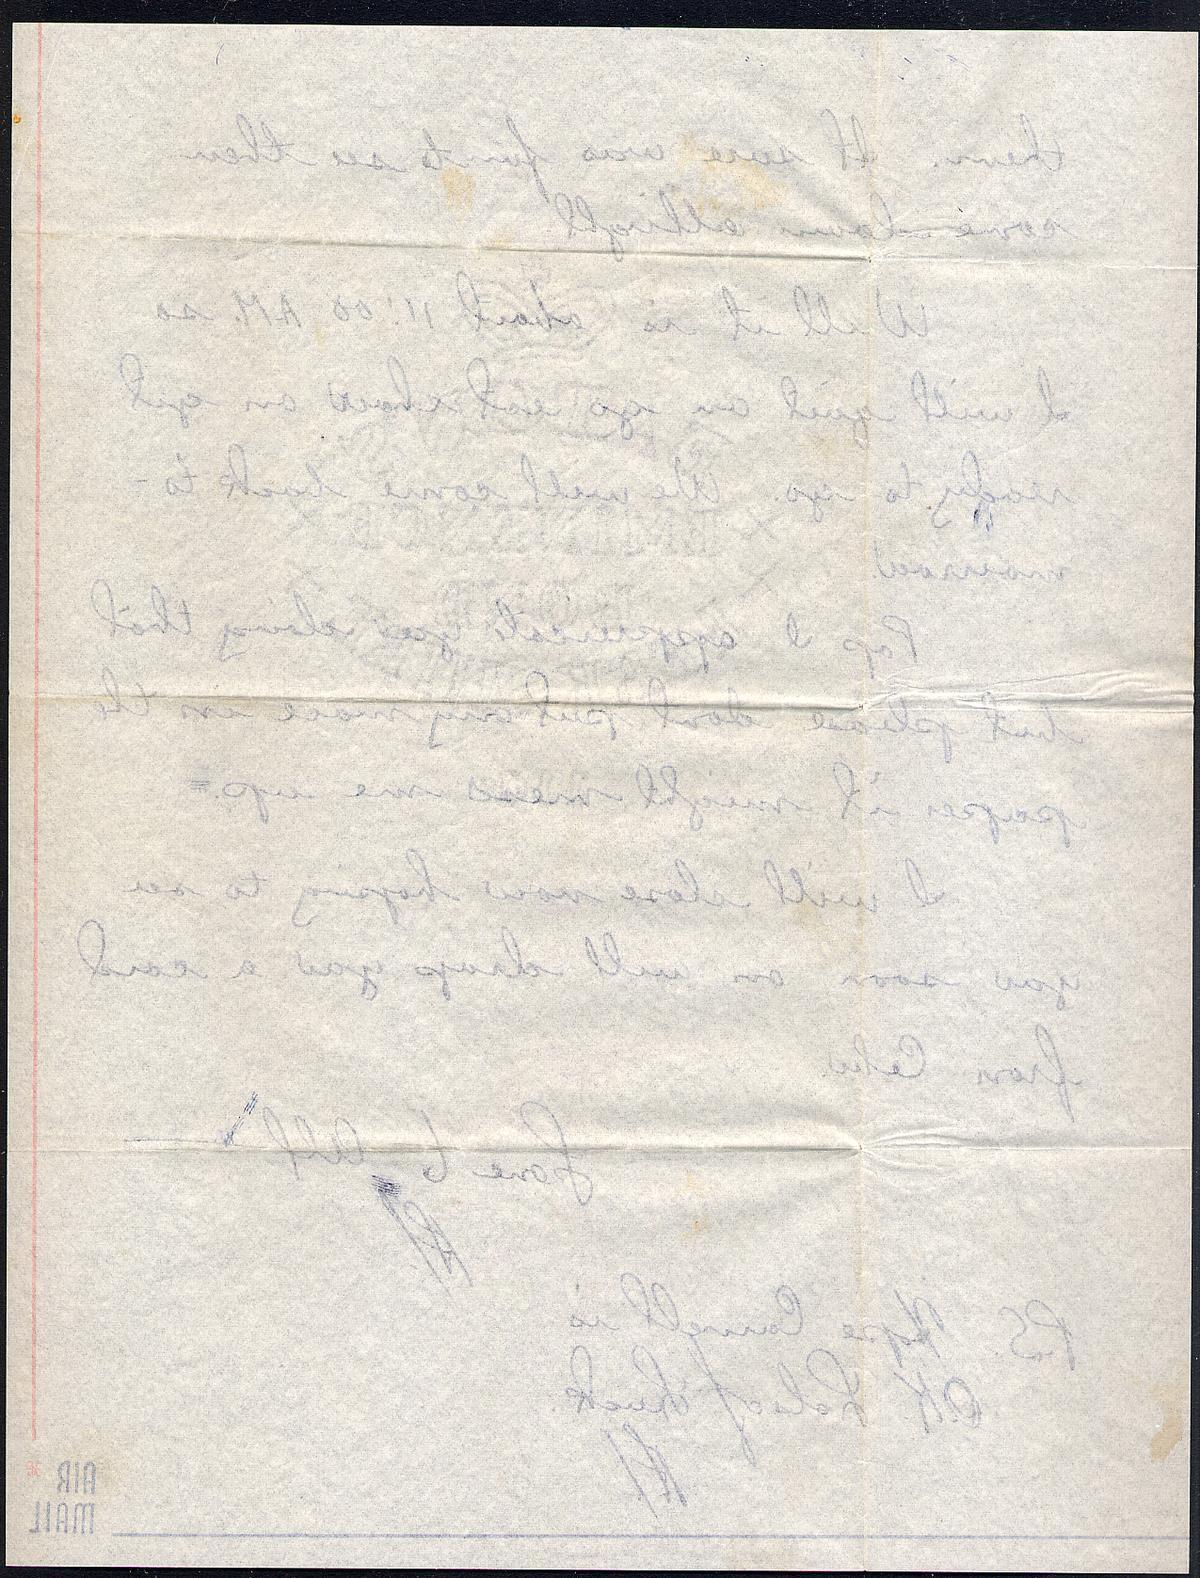 them. It sure was fun to see them
come down allright.
Well it is about 11:00 A.M. so
I will quit an go eat chow an get
ready to go. We will come back to-
morrow.
Pop I appreciate you doing that
but please dont put anymore in the
paper it might mess me up.=
I will close now hoping to see
you soon an will drop you a card
from Cebu.
Love to All
P.S. Hope Carroll is
O.K. Lots of Luck.
AIR
MAIL